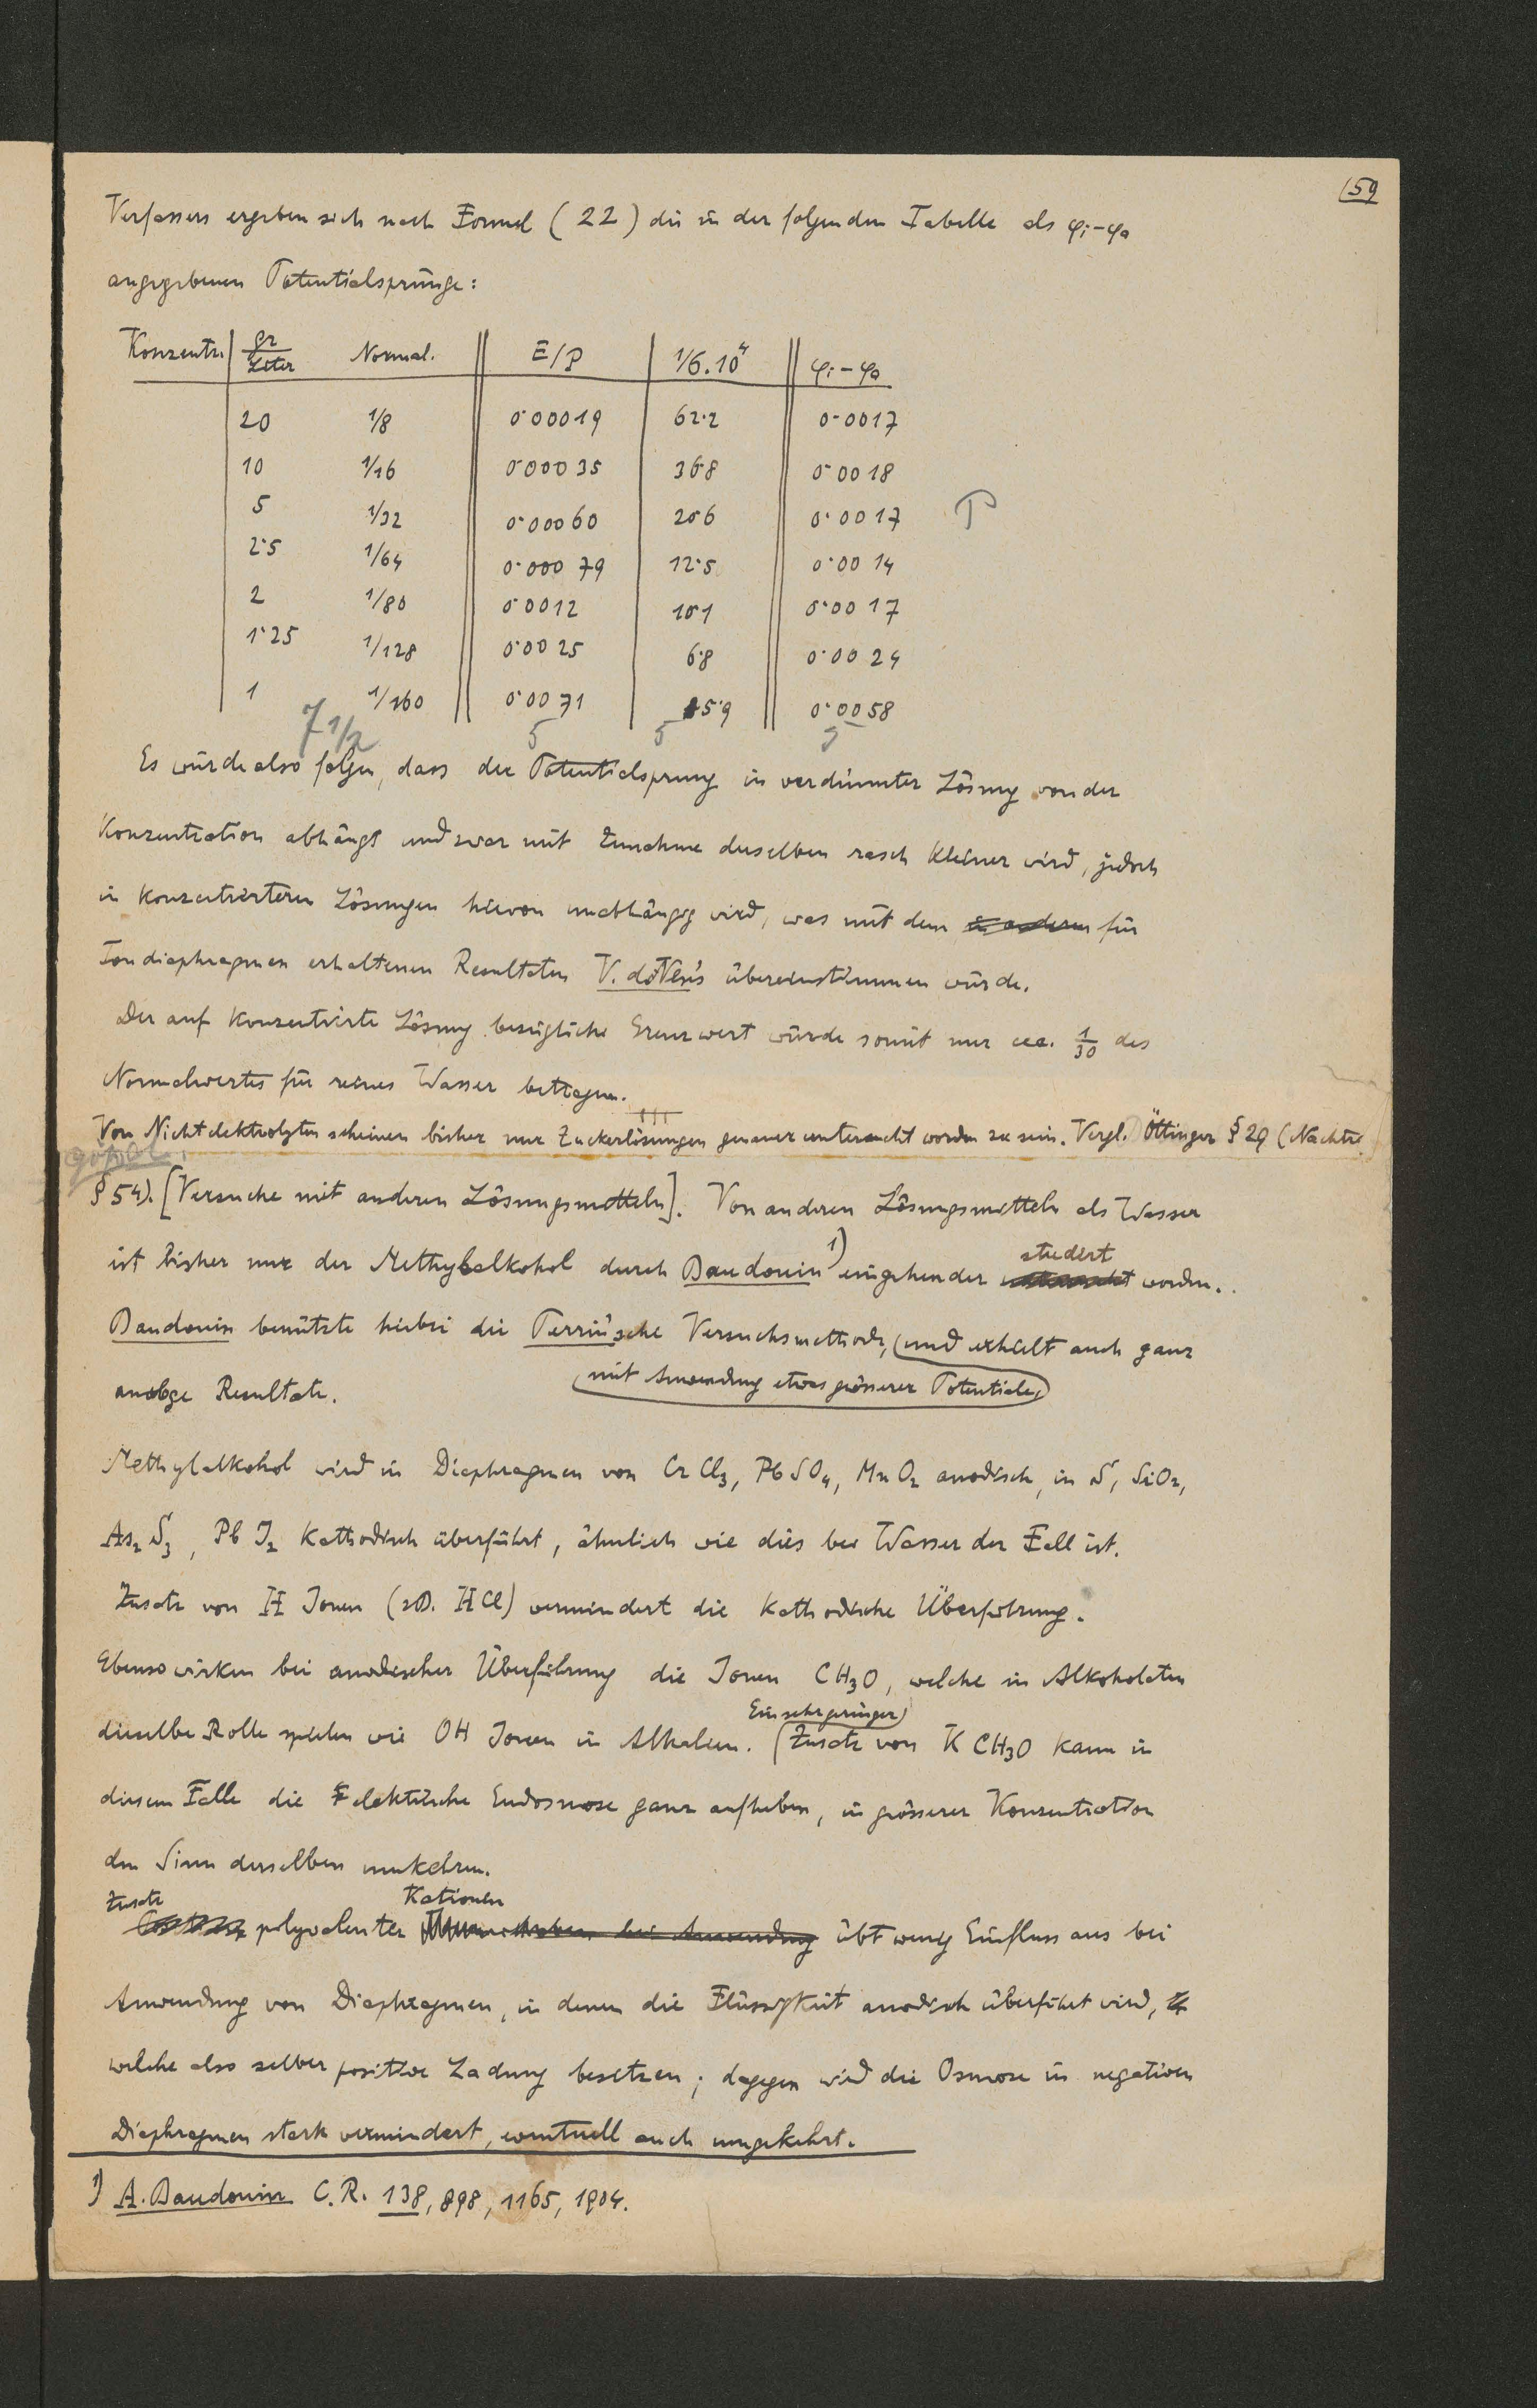 59
Verfassers ergeben sich nach Formel (22) die in der folgenden Tabelle als φi-φa
angegebenen Potentialsprünge:
Konzentr. gr/Liter Normal. E/P 1/σ.10⁴ φi-φa
20 1/8 0·00019 62·2 0·0017
10 1/16 0·00035 36·8 0·0018
5 1/32 0·00060 20·6 0·0017
2·5 1/64 0·00079 12·5 0·0014
2 1/80 0·0012 10·1 0·0017
1·25 1/128 0·0025 6·8 0·0024
1 1/160 0·0071 5·9 0·0058
7 1/2 5 5 5
Es würde also folgen, dass der Potentialsprung in verdünnter Lösung von der
Konzentration abhängt und zwar mit Zunahme derselben rasch kleiner wird, jedoch
in konzentrierteren Lösungen hievon unabhängig wird, was mit den für
Tondiaphragmen erhaltenen Resultaten übereinstimmen würde.
Der auf konzentrirte Lösung bezügliche Grenzwert würde somit nur cca. 1/30 des
Normalwertes für reines Wasser betragen.
Von Nichtelektrolyten scheinen bisher nur Zuckerlösungen genauer untersucht worden zu sein. Vergl. Öttinger § 29 (Nachtr.
§ 54). [Versuche mit anderen Lösungsmitteln]. Von anderen Lösungsmitteln als Wasser
ist bisher nur der Methylalkohol durch Baudouin 1) eingehender studiert worden.
Baudouin benützte hiebei die Perrin'sche Versuchsmethode, und erhält auch ganz
mit Anwendung etwas grösserer Potentiale,
analoge Resultate.
Methylalkohol wird in Diaphragmen von CrCl3, PbSO4, MnO2 anodisch, in S, SiO2,
As2S3, PbJ2 kathodisch überführt, ähnlich wie dies bei Wasser der Fall ist.
Zusatz von H Jonen (zB. HCl) vermindert die kathodische Überführung.
Ebenso wirken bei anodischer Überführung die Jonen CH3O, welche in Alkoholaten
Ein sehr geringer
dieselbe Rolle spielen wie OH Jonen in Alkalien. Zusatz von K CH3O kann in
diesem Falle die elektrische Endosmose ganz aufheben, in grösserer Konzentration
den Sinn derselben umkehren.
Zusatz Kationen
polyvalenter übt wenig Einfluss aus bei
Anwendung von Diaphragmen, in denen die Flüssigkeit anodisch überführt wird,
welche also selber positive Ladung besitzen; dagegen wird die Osmose in negativen
Diaphragmen stark vermindert, eventuell auch umgekehrt.
1) A. Baudouin C.R. 138, 898, 1165, 1904.